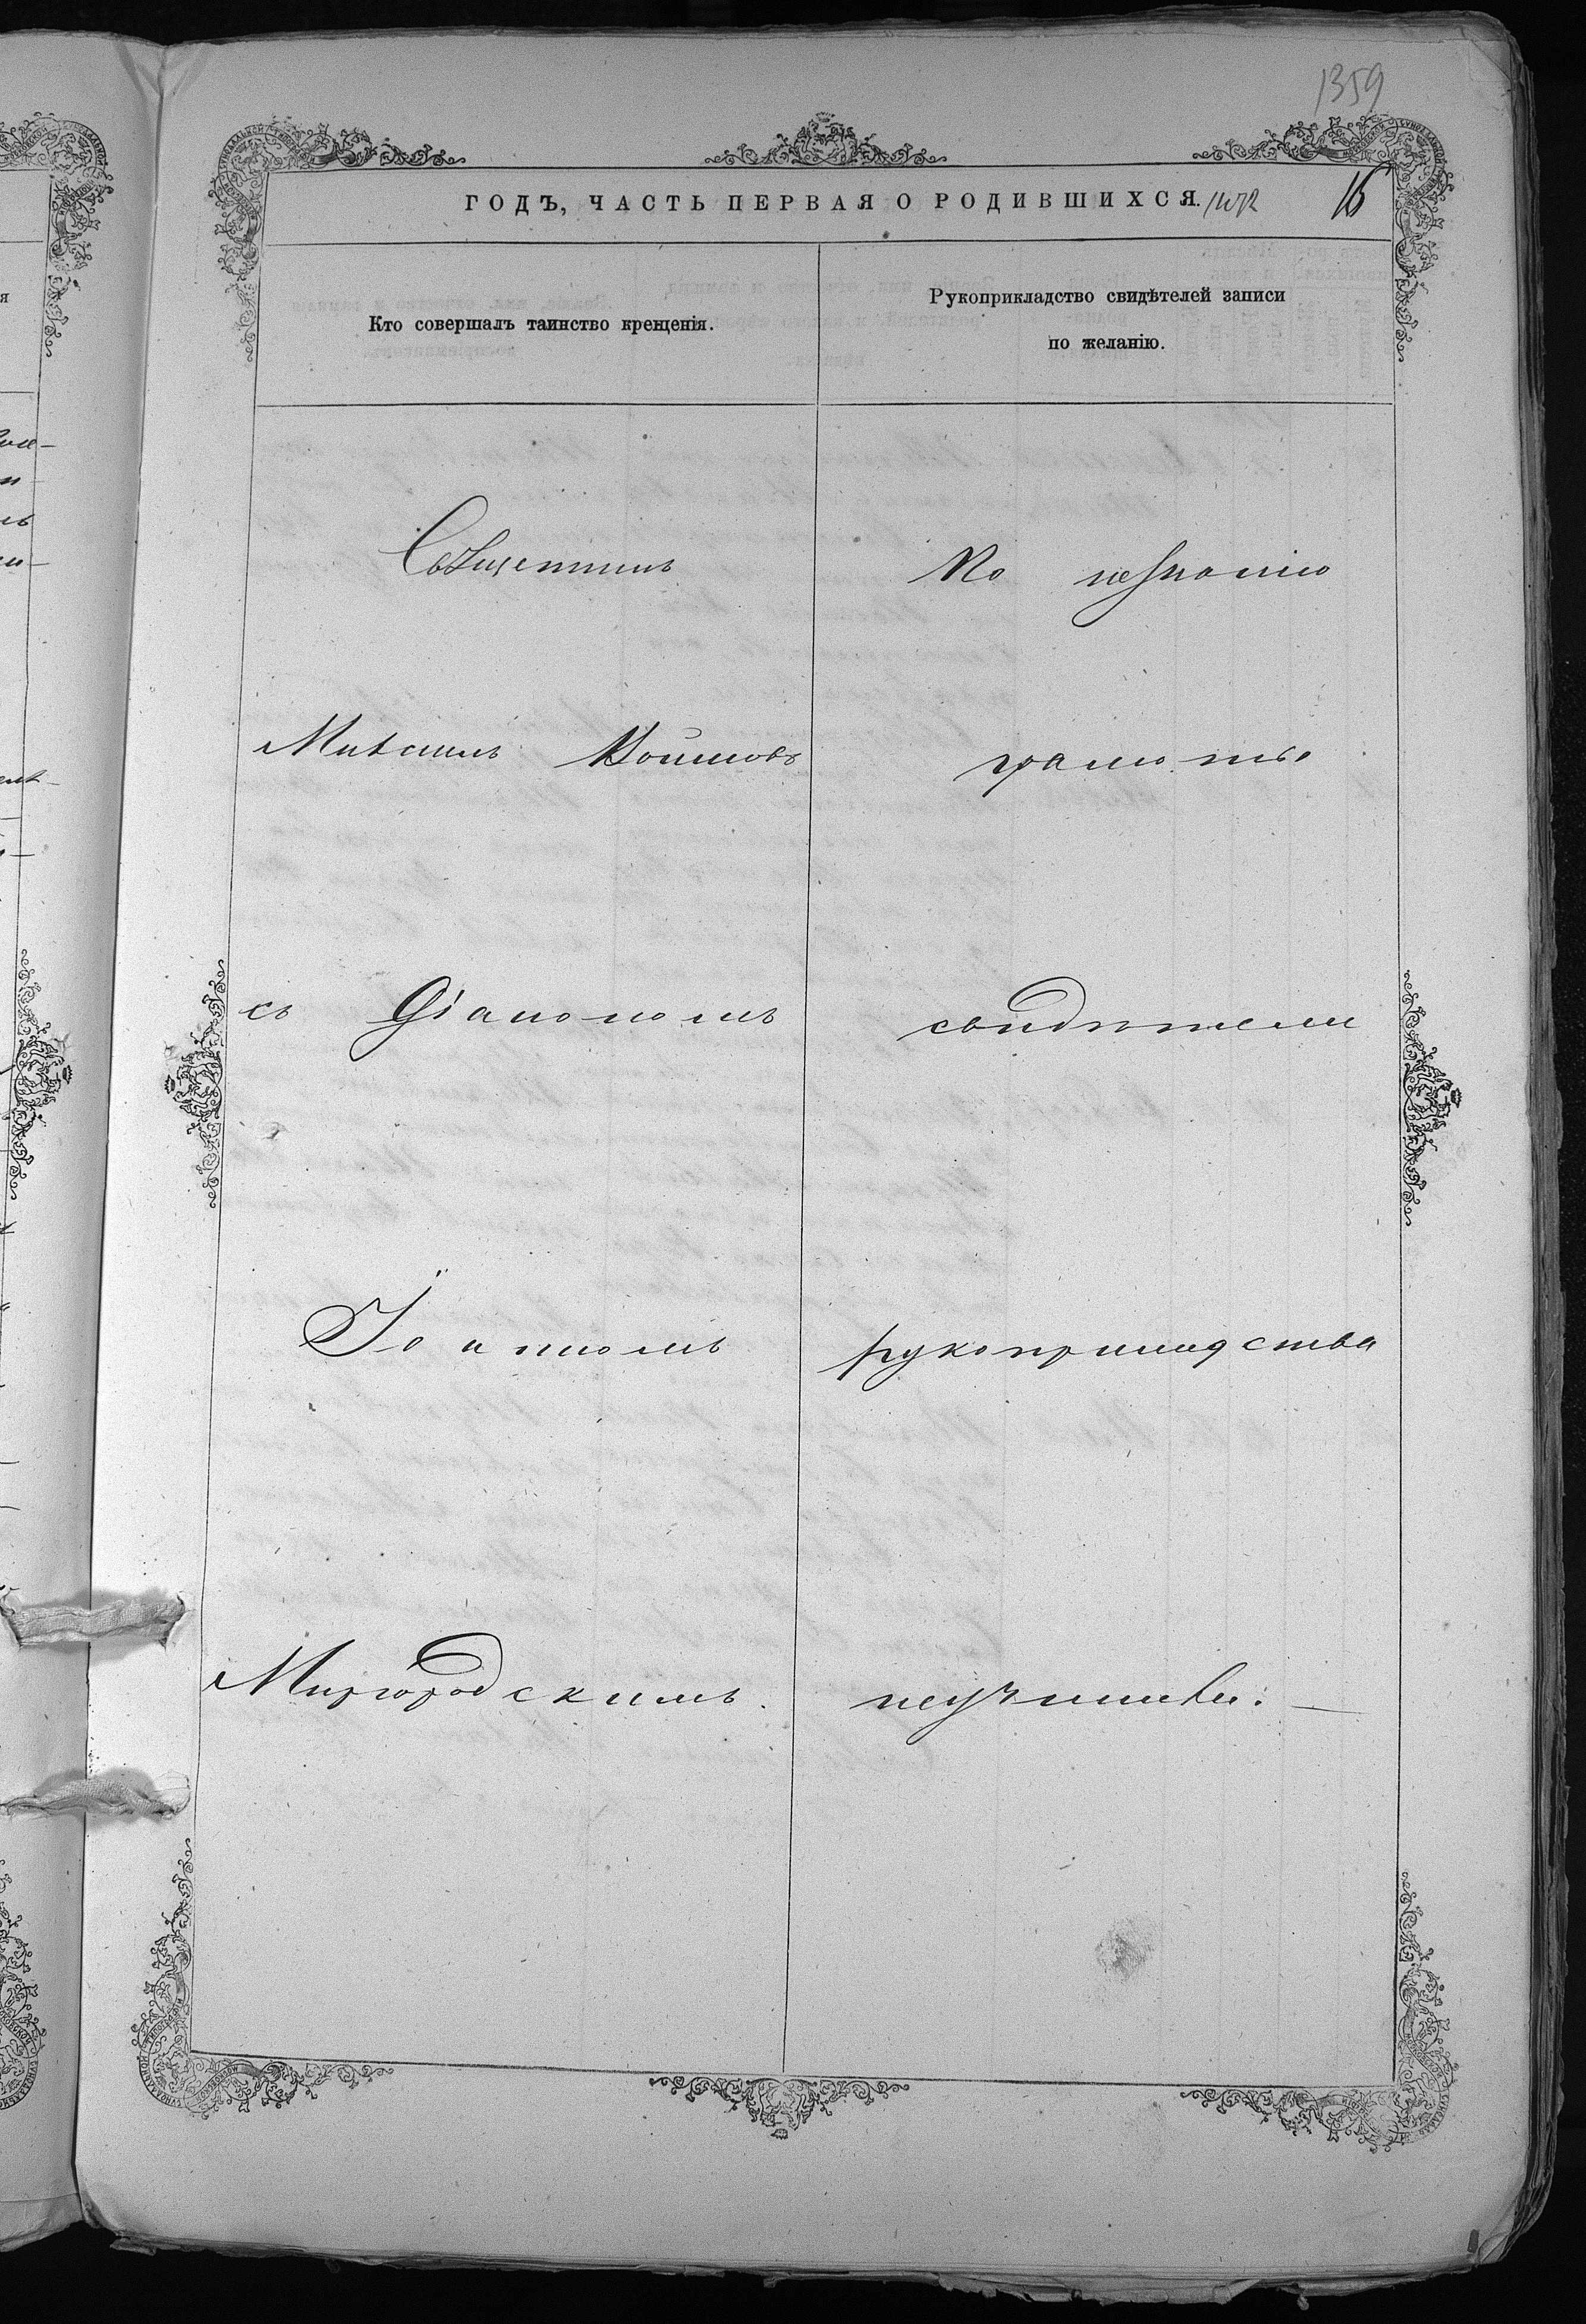 1359
ГОДЪ, ЧАСТЬ ПЕРВАЯ О РОДИВШИХСЯ. 16
Кто совершалъ таинство крещенія.
Рукоприкладство свидѣтелей записи
по желанію.
Священникъ
Михаилъ
съ Діакономъ
Іоанномъ
Миргородскимъ.
По незнанію
грамоты
свидѣтели
рукоприкладства
неучинили. —